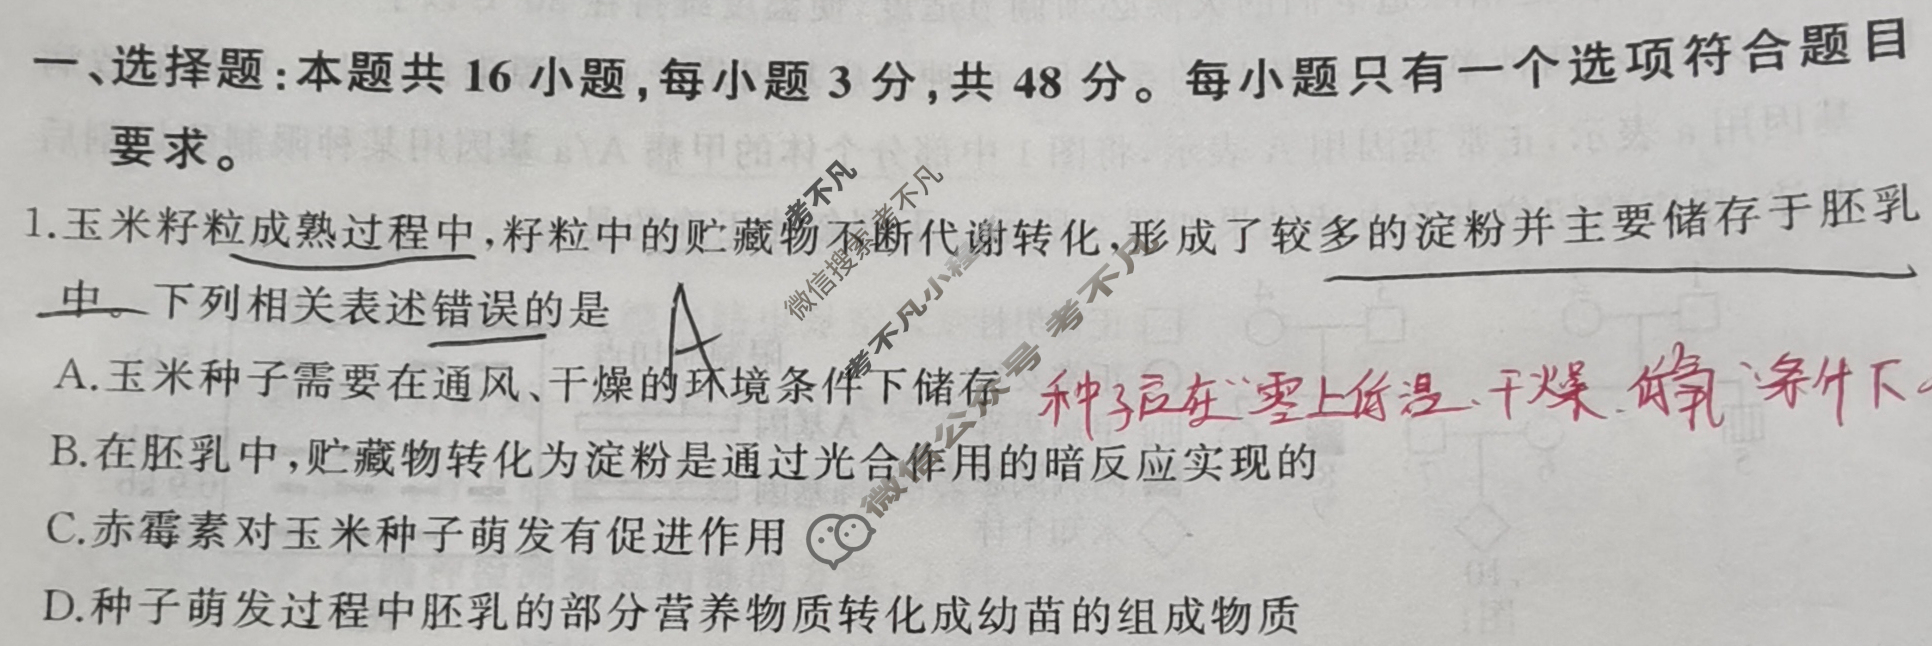 一、选择题:本题共 16 小题,每小题 3 分,共 48 分。每小题只有一个选项符合题目
要求。
1.玉米籽粒成熟过程中,籽粒中的贮藏物不断代谢转化,形成了较多的淀粉并主要储存于胚乳
中。下列相关表述错误的是
A
A.玉米种子需要在通风、干燥的环境条件下储存
种子应在“零上低温、干燥、低氧”条件下
B.在胚乳中,贮藏物转化为淀粉是通过光合作用的暗反应实现的
C.赤霉素对玉米种子萌发有促进作用
D.种子萌发过程中胚乳的部分营养物质转化成幼苗的组成物质
考不凡
微信搜索考不凡
考不凡小程序
微信公众号 考不凡